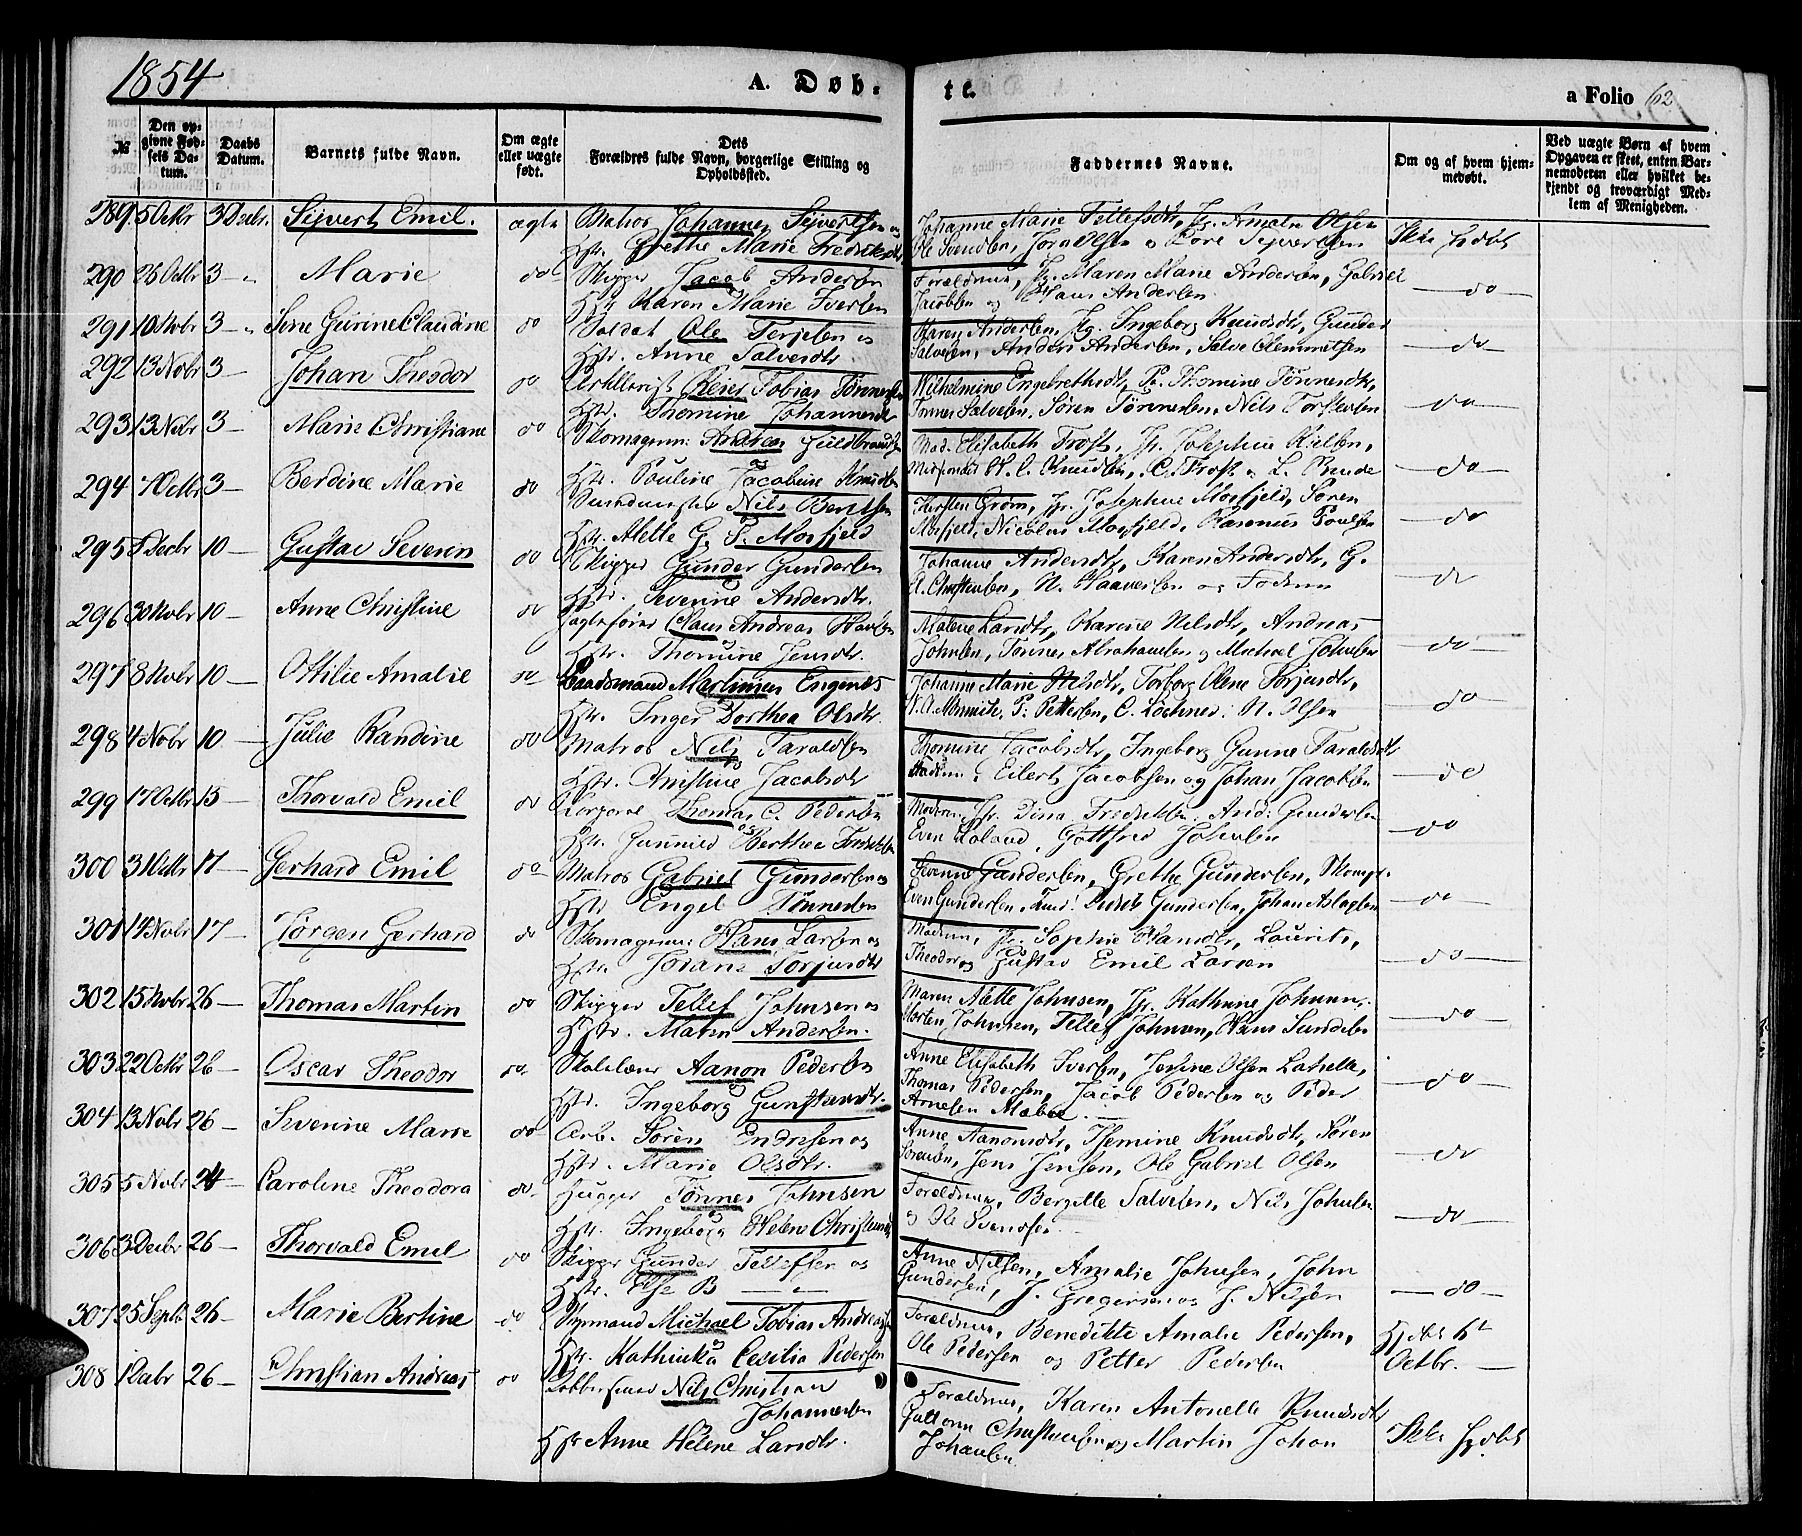 1854
A. Døb-
te.
a Folio 62
№
Den opgivne Fødsels Datum.
Daabs Datum.
Barnets fulde Navn.
Om ægte eller uægte født.
Dets Forældres fulde Navn, borgerlige Stilling og Opholdssted.
Faddernes Navne.
Om og af hvem hjemmedøbt.
Ved uægte Børn af hvem Opgaven er skeet, enten Barnemoderen eller hvilket bekjendt og troværdigt Medlem af Menigheden.
289. 5 Octbr 3 Decbr. Sejvert Emil. ægte Matros Johannes Sejvertsen og
Hstr. Grethe Marie Fredriksdtr
Johanne Marie Tellefsdtr, Jfr. Amalie Olsen
Ole Svendsen, Olsen Tore Sejvertsen
290 26 Octbr 3 — Marie do Skipper Jacob Andersen
Hstr. Karen Marie Iversen
Forældrene, Jfr. Maren Marie Andersen, Gabriel
Jacobsen og Claus Andersen
— do —
291 10 Novbr 3 — Gurine Claudine do Soldat Ole Terjesen og
Hstr. Anne Salvesdtr
Karen Andersen, Jfr. Ingeborg Knudsdtr, Gunder
Salvesen, Anders Andersen, Salve Clemmetsen
— do —
292 13 Novbr 3 — Johan Theodor do Artillerist Reier Tobias Tønnesen
Hstr. Thomine Johannesdtr
Wilhelmine Engebrethsdtr, P. Thomine Tønnesdtr,
Tønnes Salvesen, Søren Tønnesen, Nils Torstensen
— do —
293 13 Novbr 3 — Marie Christiane do Skomagerm: Andreas Guldbrandsen
Hstr. Pouline Jacobine Knudsen
Mad. Elisabeth Frost, Jfr. Josephine Nielsen,
Knudsen, C. Frost
— do —
294 7 Octbr 3 — Berdine Marie do Nils Berntsen
Hstr. Alette G. P. Mosfjeld
Kirsten Grøm, Jfr. Josephine Mosfjeld, Søren
Mosfjeld, Nicolai Mosfjeld, Rasmus Poulsen
— do
295 Decbr 10 — Gustav Severin do Skipper Gunder Gundersen
Hstr. Severine Andersdtr.
Johanne Andersdtr, Karen Andersdtr, G.
A. Christensen, N. Haaversen og Faderen
— do
296 30 Novbr 10 — Anne Christine do Jagtefører Claus Andreas Hansen
Hstr. Thomine Jensdtr.
Malene Larsdtr, Karine Nilsdtr, Andreas
Johnsen, Tønnes Abrahamsen og Michael Johnsen
— do —
297 8 Novbr 10 — Ottilie Amalie do Baadsmand Martinsen Engenes
Hstr. Inger Dorthea Olsdtr.
Johanne Marie Nilsdtr, Torborg Olene Terjesdtr,
P. Pettersen, C. Lochner, N. Olsen
— do
298 4 Novbr 10 — Julie Randine do Matros Nils Taraldsen
Hstr. Christine Jacobsdtr
Thomine Jacobsdtr, Ingeborg Gunne Taraldsdtr
Faderen, Eilert Jacobsen og Johan Jacobsen
— do
299 17 Octbr 15 — Thorvald Emil do Corporal Thomas C. Pedersen
Hstr. Gunnild Berthea
Moderen, Jfr. Dina Fredriksen, And: Gundersen
Even Roland, Gottfred Johnsen
— do
300 31 Octbr 17 — Gerhard Emil do Matros Gabriel Gundersen og
Hstr Engel Tønnesen
Severine Gundersen, Grethe Gundersen,
Even Gundersen, Gundersen, Johan Aslagsen
— do —
301 14 Novbr 17 — Jørgen Gerhard do Skomagerm: Hans Larsen og
Hstr. Torjusdtr
Moderen, Jfr. Sophie Hansdtr, Laurits,
Theodor og Gustav Emil Larsen
— do —
302 15 Novbr 26 — Thomas Martin do Skipper Tellef Johnsen og
Hstr. Maren Andersen.
Maren Alette Johnsen, Jfr. Kathrine Johnsen,
Morten Johnsen, Tellef Johnsen, Hans Sundsen
— do —
303 22 Octbr 26 — Oscar Theodor do Aanon Pedersen
Hstr. Ingeborg Gunstensdtr.
Anne Elisabeth Iversen, Josine Olsen
Thomas Pedersen, Jacob Pedersen og Peder
Arnesen Mæbøe —
— do —
304 13 Novbr 26 — Severine Marie do Arb. Søren Endresen og
Hstr. Marie Olsdtr.
Anne Aanonsdtr, Knudsdtr, Søren
Sørensen, Jens Jensen, Ole Gabriel Olsen
— do
305 5 Novbr 24 — Caroline Theodora do Tønnes Johnsen
Hstr. Ingeborg Helene Christensen
Forældrene, Bergitte Salvesen, Nils Johnsen
og Ole Svendsen
— do —
306 3 Decbr 26 — Thorvald Emil do Skipper Gunder Tellefsen og
Hstr. Else B —
Anne Nilsen, Amalie Johnsen, John
Gundersen, J. Gregersen og J. Nilsen
— do —
307 25 Septb 26 — Marie Bertine do Styrmand Michael Tobias Andreassen
Hstr. Kathinka Cecilia Pedersen
Forældrene, Benedikte Amalie Pedersen,
Ole Pedersen og Petter Pedersen
Octbr. —
308 26 — Christian Andreas do Nils Christian
Johannesen
Hstr Anne Helene Larsdtr.
Forældrene, Karen Antonette Knudsdtr
Christensen og Martin Johan
Johansen